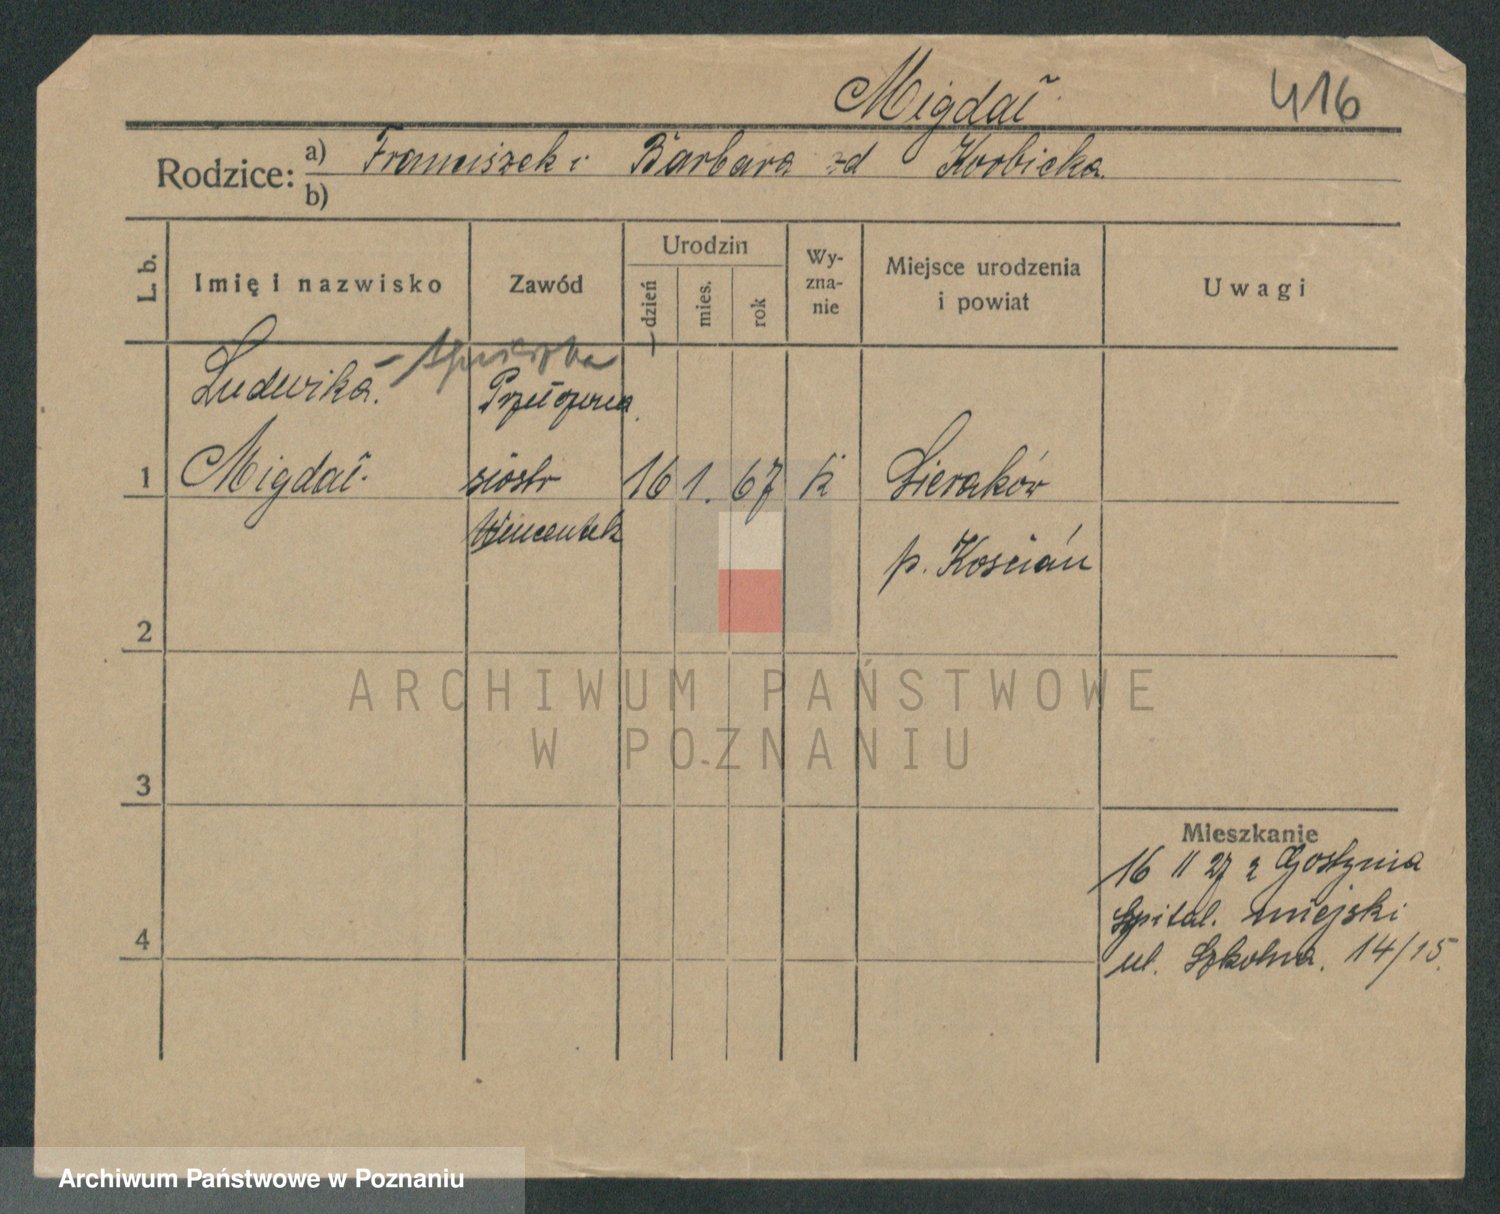 Migdał
416
Rodzice: a) Franciszek i Barbara zd Korbicka.
b)
L. b.
Imię i nazwisko
Zawód
Urodzin
dzień
mies.
rok
Wy-
zna-
nie
Miejsce urodzenia
i powiat
Uwagi
Ludwika. - Agnieszka
Przełożona
1 Migdał. siostr 16 1. 67 k Sieraków
Wincentek
p. Kościan
2
3
4
Mieszkanie
16 II 27 z Gostynia
Szpital. miejski
ul. Szkolna. 14/15.
ARCHIWUM PAŃSTWOWE
W POZNANIU
Archiwum Państwowe w Poznaniu